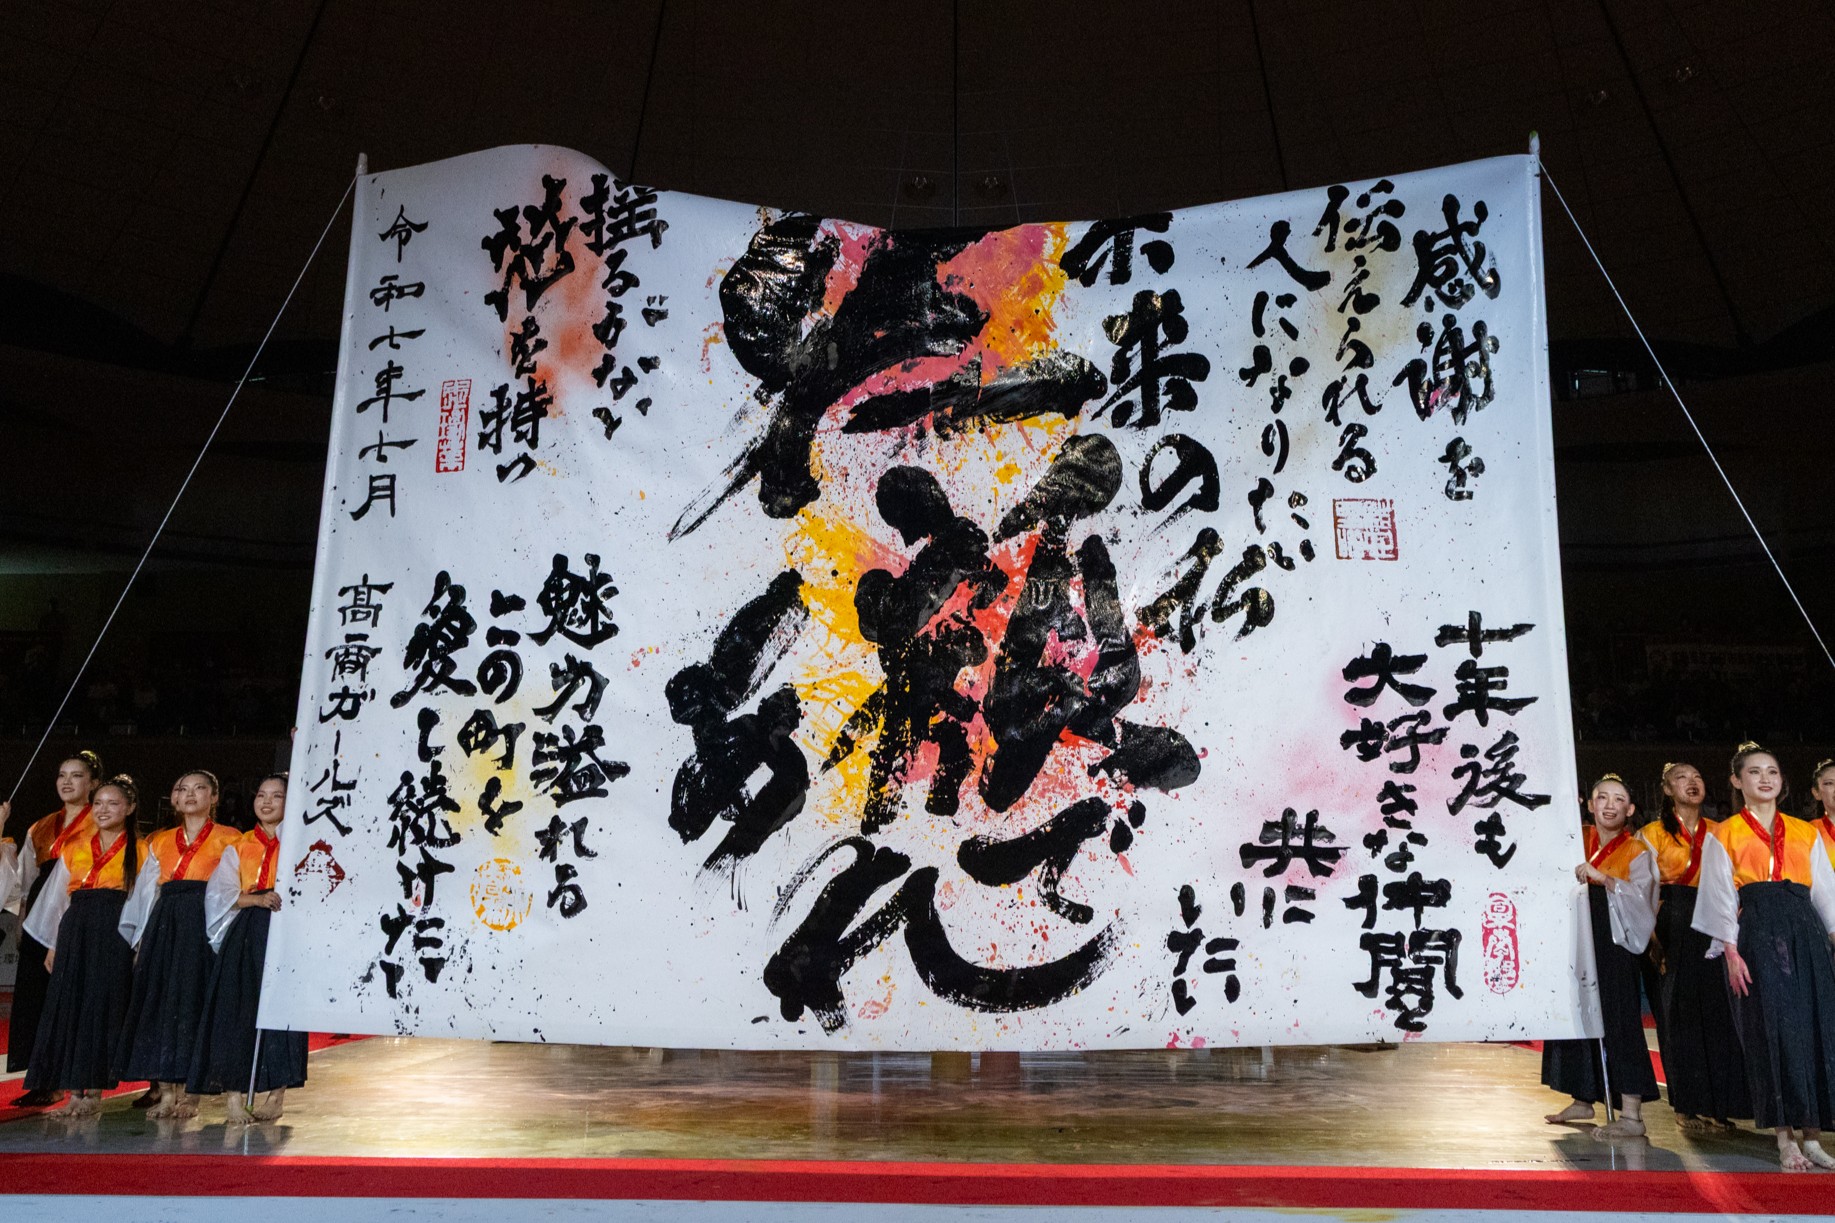 感謝を
伝えられる
人になりたい
十年後も
大好きな仲間と
共に
いたい
未来の私
揺るがない
を持つ
魅力溢れる
この町を
愛し続けたい
令和七年七月
髙商ガールズ